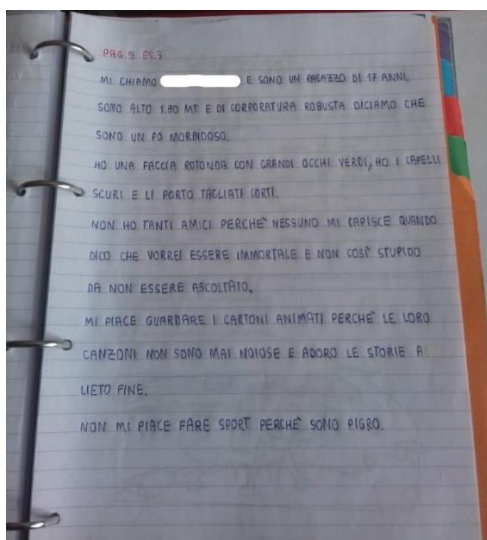 PAG.9 ES.3
MI CHIAMO E SONO UN RAGAZZO DI 17 ANNI,
SONO ALTO 1.80 MT E DI CORPORATURA ROBUSTA DICIAMO CHE
SONO UN PO MORBIDOSO.
HO UNA FACCIA ROTONDA CON GRANDI OCCHI VERDI, HO I CAPELLI
SCURI E LI PORTO TAGLIATI CORTI.
NON HO TANTI AMICI PERCHE' NESSUNO MI CAPISCE QUANDO
DICO CHE VORREI ESSERE IMMORTALE E NON COSÌ STUPIDO
DA NON ESSERE ASCOLTATO.
MI PIACE GUARDARE I CARTONI ANIMATI PERCHE' LE LORO
CANZONI NON SONO MAI NOIOSE E ADORO LE STORIE A
LIETO FINE.
NON MI PIACE FARE SPORT PERCHE' SONO PIGRO.